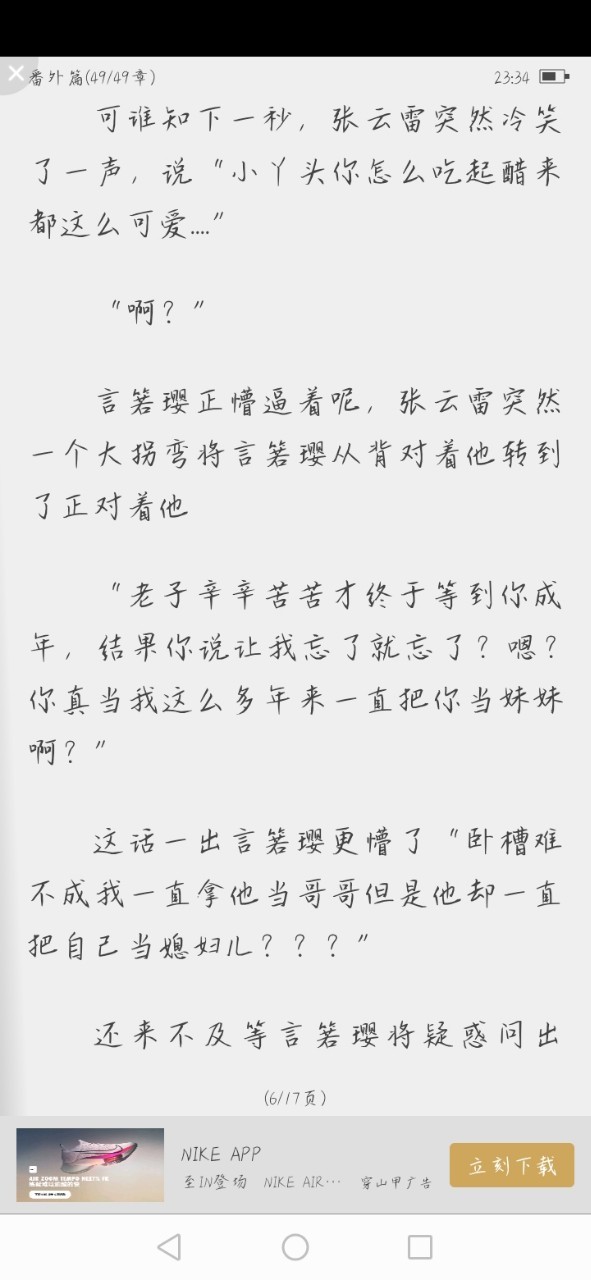 番外篇(49/49章)
23:34
可谁知下一秒，张云雷突然冷笑
了一声，说“小丫头你怎么吃起醋来
都这么可爱....”
“啊？”
言箬璎正懵逼着呢，张云雷突然
一个大拐弯将言箬璎从背对着他转到
了正对着他
“老子辛辛苦苦才终于等到你成
年，结果你说让我忘了就忘了？嗯？
你真当我这么多年来一直把你当妹妹
啊？”
这话一出言箬璎更懵了“卧槽难
不成我一直拿他当哥哥但是他却一直
把自己当媳妇儿？？？”
还来不及等言箬璎将疑惑问出
(6/17页)
AIR ZOOM TEMPO NEXT% FK
NIKE APP
至IN登场 NIKE AIR… 穿山甲广告
立刻下载